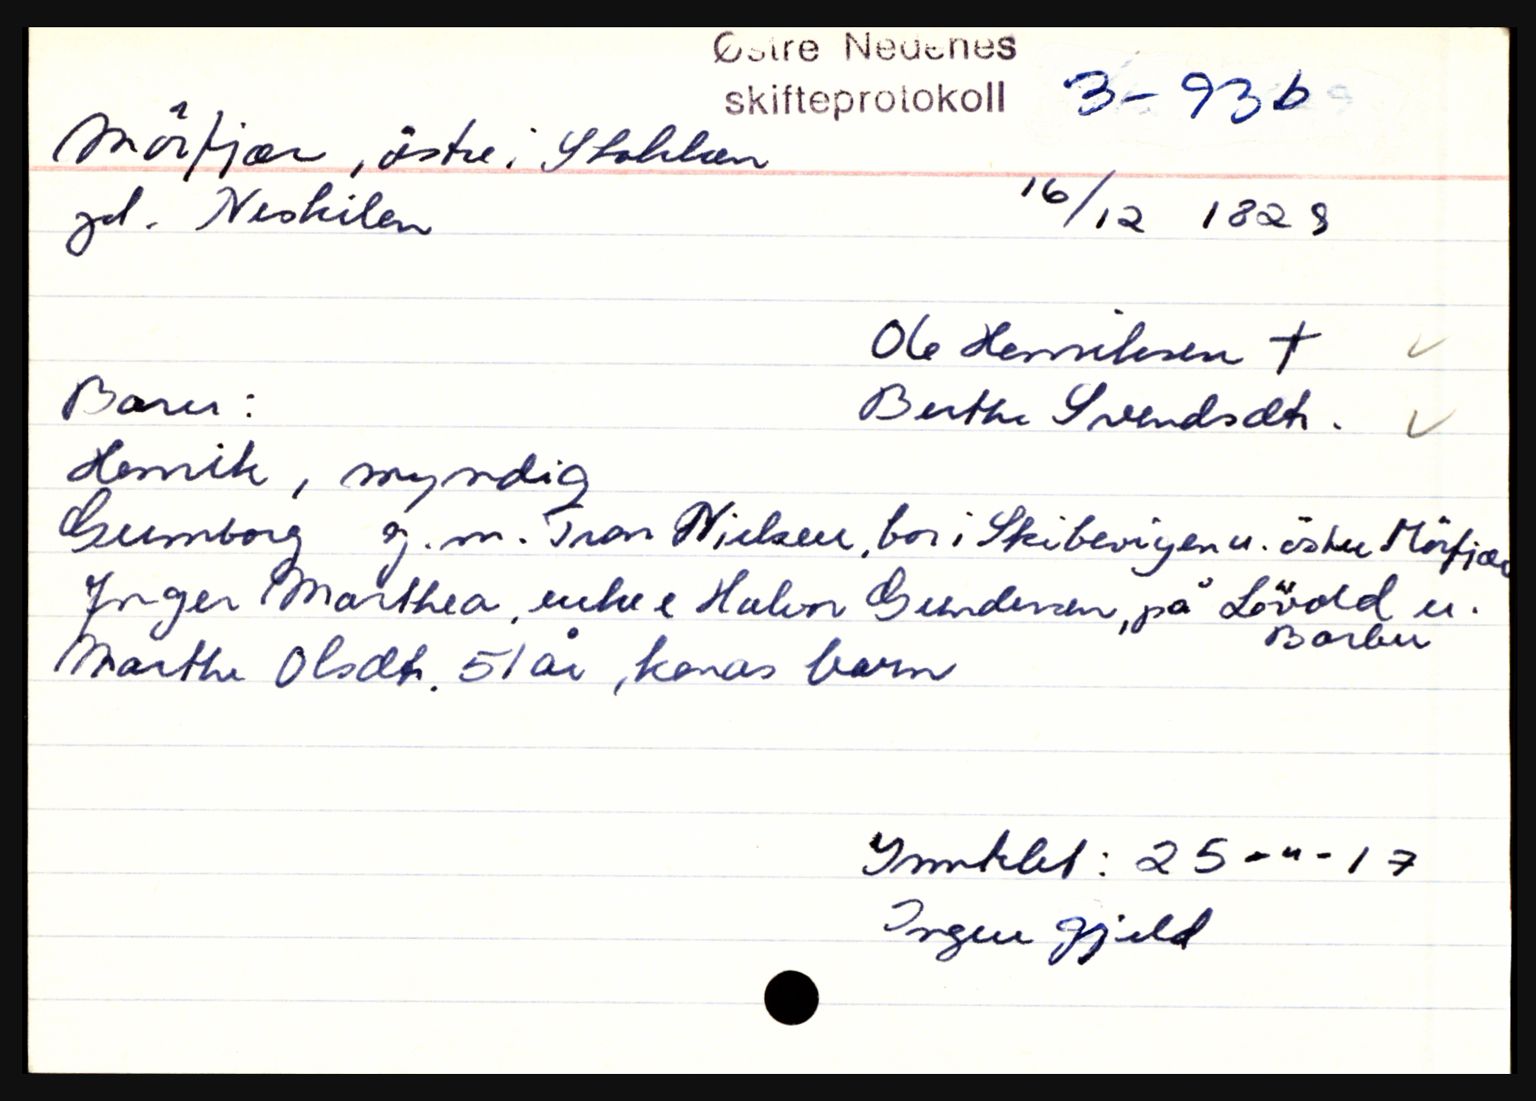 Østre Nedenes
skifteprotokoll 3-93b
Mörfjær, östre i Stokken
gd. Neskilen 16/12 1828
Ole Henriksen †
Barn: Berthe Svendsdtr.
Henrik, myndig
Gumborg g.m. Tron Nielsen, bor i Skibevigen u. östre Mörfjær
Inger Marthea, enke e Halvor Gundersen, på Lövold u.
Barbu
Marthe Olsdtr. 51 år, konas barn
Inntekt: 25-"-17
Ingen gjeld